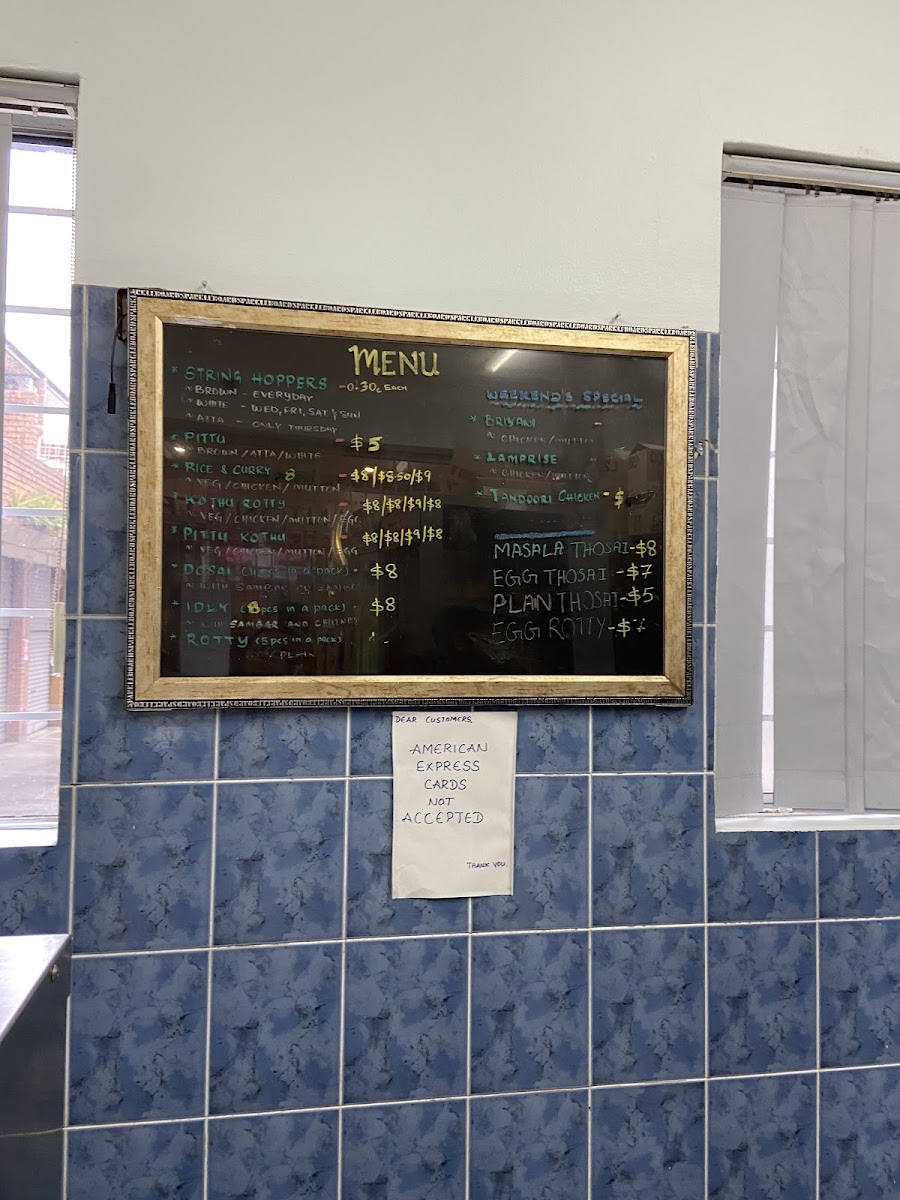 MENU
* STRING HOPPERS -0.30c EACH
~ BROWN - EVERYDAY
~ WHITE - WED, FRI, SAT & SUN
~ ATTA - ONLY THURSDAY
* PITTU - $5
~ BROWN/ATTA/WHITE
* RICE & CURRY - $8/$8.50/$9
~ VEG/CHICKEN/MUTTON
* KOTHU ROTTY $8/$8/$9/$8
~ VEG/CHICKEN/MUTTON/EGG
* PITTU KOTHU - $8/$8/$9/$8
~ VEG/CHICKEN/MUTTON/EGG
* DOSAI in a pack) - $8
* IDLY (8pcs in a pack) - $8
SAMBAR AND CHUTNEY
* ROTTY (5pcs in a pack) -
WEEKEND'S SPECIAL
* BRIYANI -
~ CHICKEN/MUTTON
* LAMPRISE
~ CHICKEN/MUTTON
* TANDOORI CHICKEN - $
MASALA THOSAI - $8
EGG THOSAI - $7
PLAN THOSAI - $5
EGG ROTTY - $
DEAR CUSTOMERS,
AMERICAN
EXPRESS
CARDS
NOT
ACCEPTED
THANK YOU.